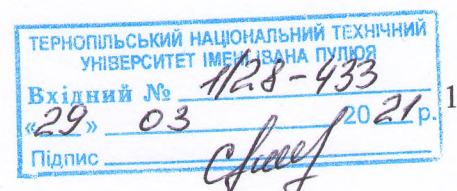 ТЕРНОПІЛЬСЬКИЙ НАЦІОНАЛЬНИЙ ТЕХНІЧНИЙ
УНІВЕРСИТЕТ ІМЕНІ ІВАНА ПУЛЮЯ
Вхідний № 1/28-433
«29» 03 2021 р. 1
Підпис